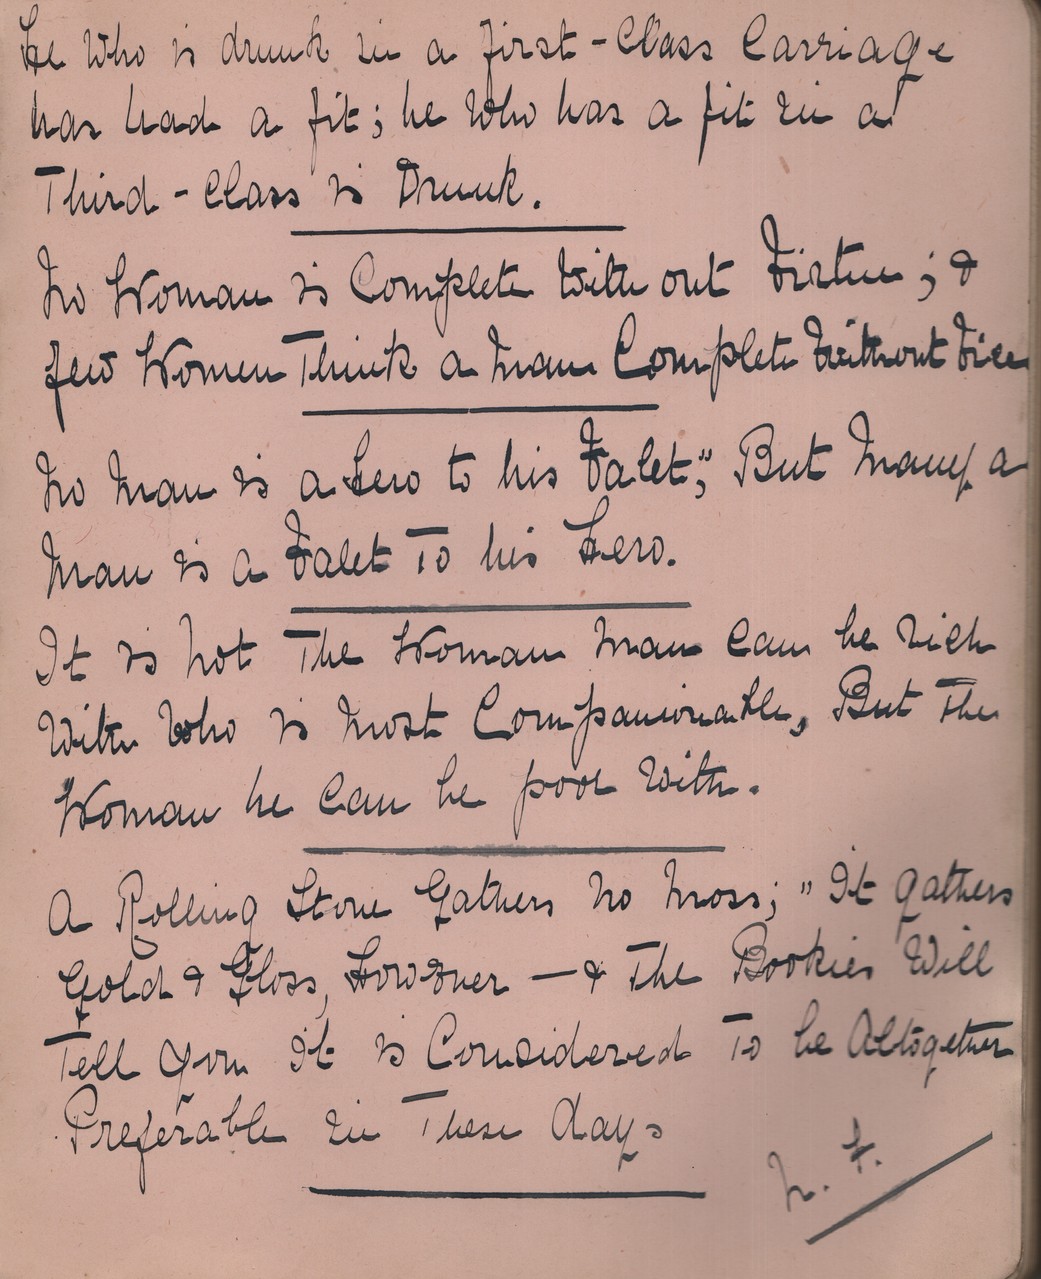 He Who is drunk in a first-Class Carriage
has had a fit; he Who has a fit in a
Third-Class is Drunk.
No Woman is Complete With out Virtue; &
few Women Think a Man Complete Without Vice
No Man is a Hero to his Valet;" But Many a
Man is a Valet To his Hero.
It is Not The Woman Man Can be rich
With Who is Most Companionable, But The
Woman he Can be poor With.
A Rolling Stone Gathers No Moss; " It gathers
Gold & Gloss, However — & The Bookies Will
Tell You It is Considered To be Altogether
Preferable in These days